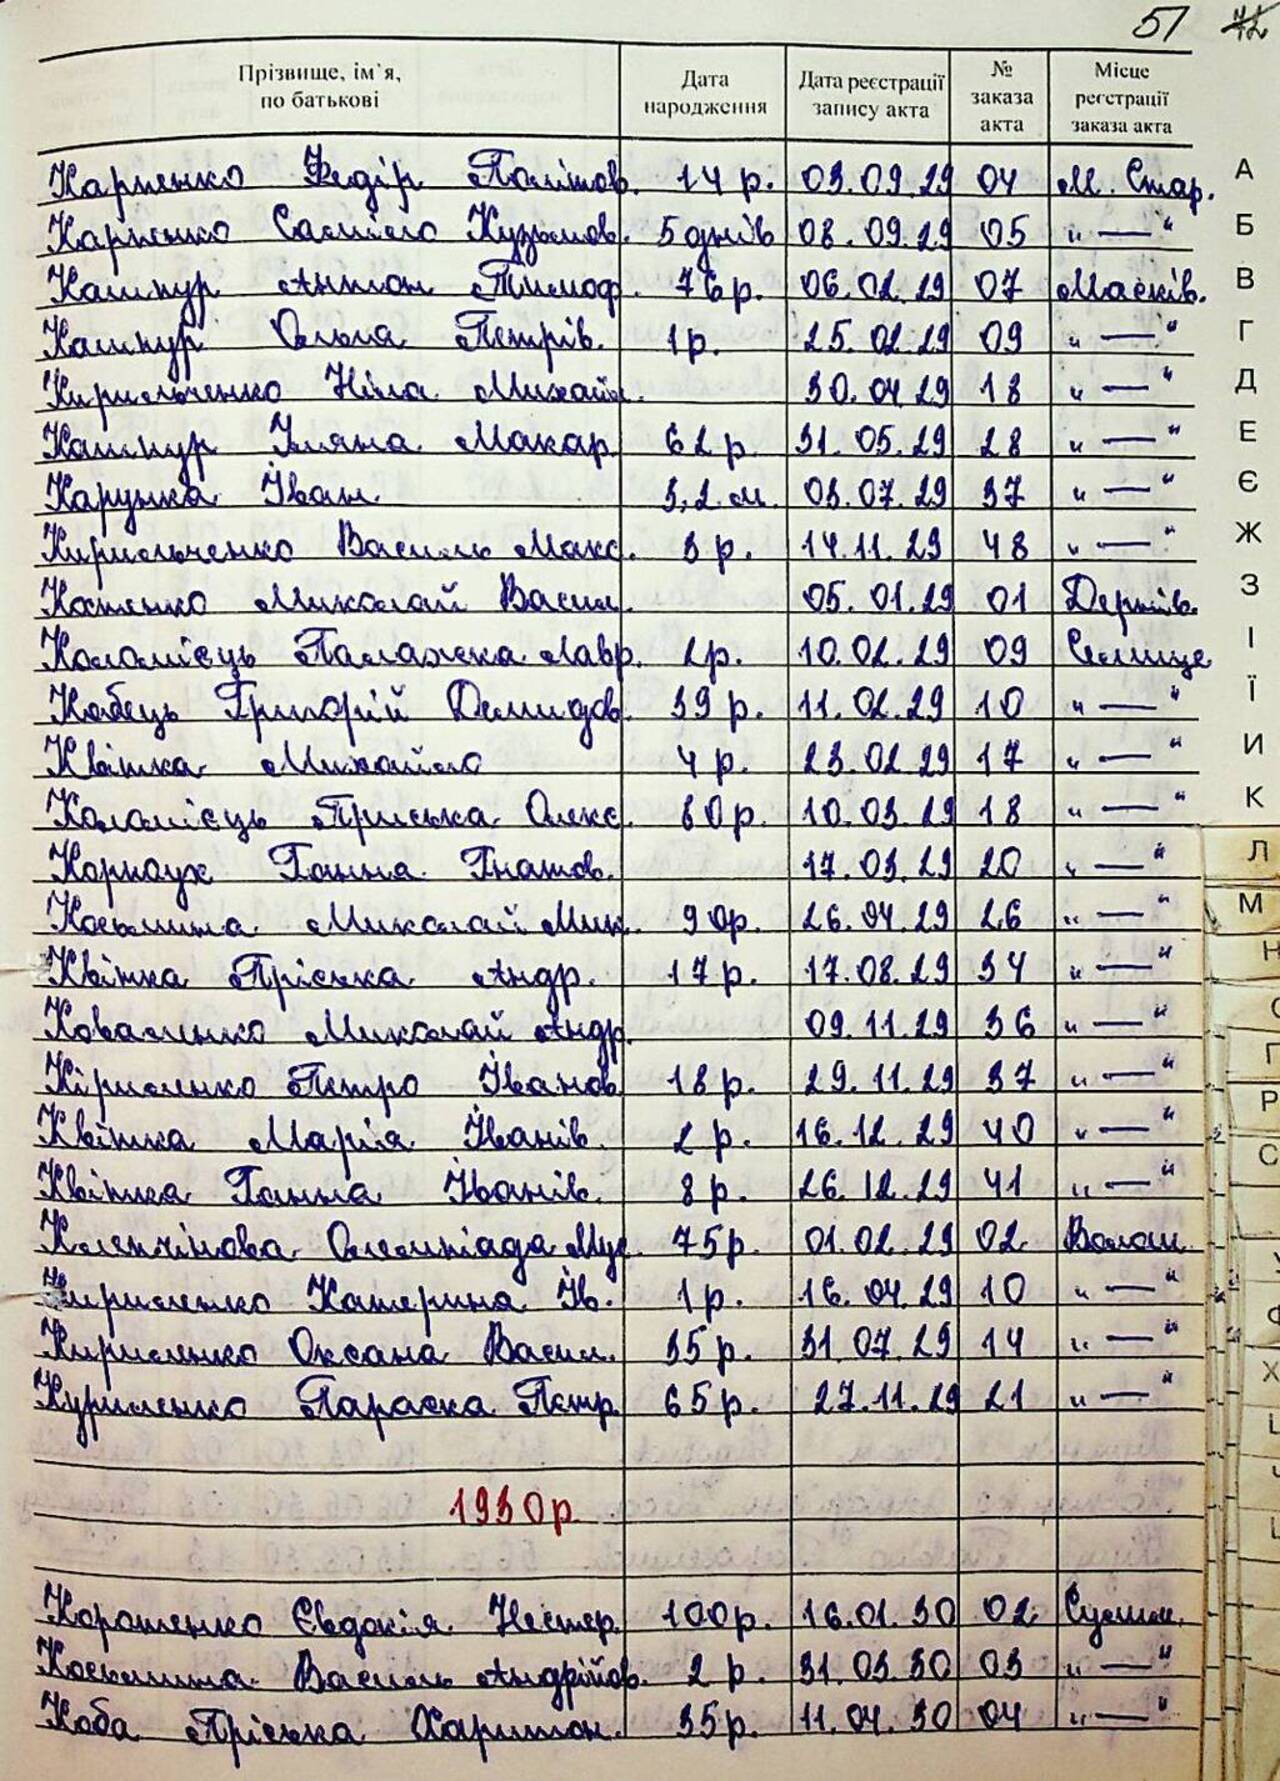 51 72
Прізвище, ім'я, по батькові Дата народження Дата реєстрації запису акта № заказа акта Місце реєстрації заказа акта
Карпенко Федір Політов. 14 р. 03.09.29 04 М. Стар. А
Карпенко Саміло Кузьмов. 5 днів 08.09.29 05 " — " Б
Кашпур Антон Тимоф. 76 р. 06.02.29 07 Маєків. В
Кашпур Ольга Петрів. 1 р. 25.02.29 09 " — " Г
Кирильченко Ніла Михайл. 30.04.29 18 " — " Д
Кашпур Уляна Макар. 62 р. 31.05.29 28 " — " Е
Карунка Іван 3,2 м. 03.07.29 37 " — " Є
Кирильченко Василь Макс. 3 р. 14.11.29 48 " — " Ж
Миколай Васил. 05.01.29 01 З
Коломієць Палажка Лавр. 2 р. 10.02.29 09 Селище І
Кобець Григорій Демидов. 39 р. 11.02.29 10 " — " Ї
Квітка Михайло 4 р. 23.02.29 17 " — " И
Коломієць Приська Олекс. 80 р. 10.03.29 18 " — " К
Корнаух Ганна Гнатов. 17.03.29 20 " — " Л
Косьмина Миколай Мик. 90 р. 26.04.29 26 " — " М
Квітка Пріська Андр. 17 р. 17.08.29 34 " — " Н
Коваленко Миколай Андр. 09.11.29 36 " — "
Кіриленко Петро Іванов. 18 р. 29.11.29 37 " — " П
Квітка Марія Іванів. 2 р. 16.12.29 40 " — " Р
Квітка Ганна Іванів. 8 р. 26.12.29 41 " — " С
Клепчінова Олемпіада Мус. 75 р. 01.02.29 02 Волош.
Кириленко Катерина Ів. 1 р. 16.04.29 10 " — "
Кириленко Оксана Васил. 35 р. 31.07.29 14 " — "
Куриленко Параска Петр. 65 р. 27.11.29 21 " — " Х
1930 р.
Коротенко Євдокія Нестер. 100 р. 16.01.30 02 Сушин.
Косьмина Василь Андрійов. 2 р. 31.03.30 03 " — "
Коба Пріська Харитон. 35 р. 11.04.30 04 " — "